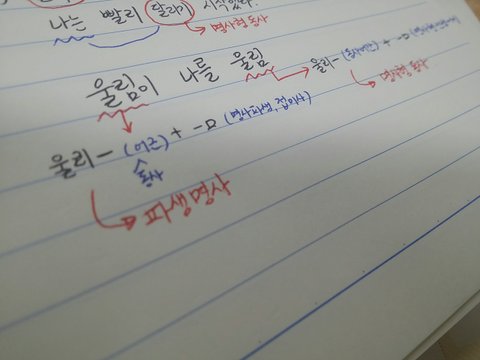 나는 빨리 달리기 시작했다.
명사형 동사
울림이 나를 울림
울리- (동사어간) + -ㅁ
명사형 동사
울리- (어근) + -ㅁ (명사파생 접미사)
동사
파생명사